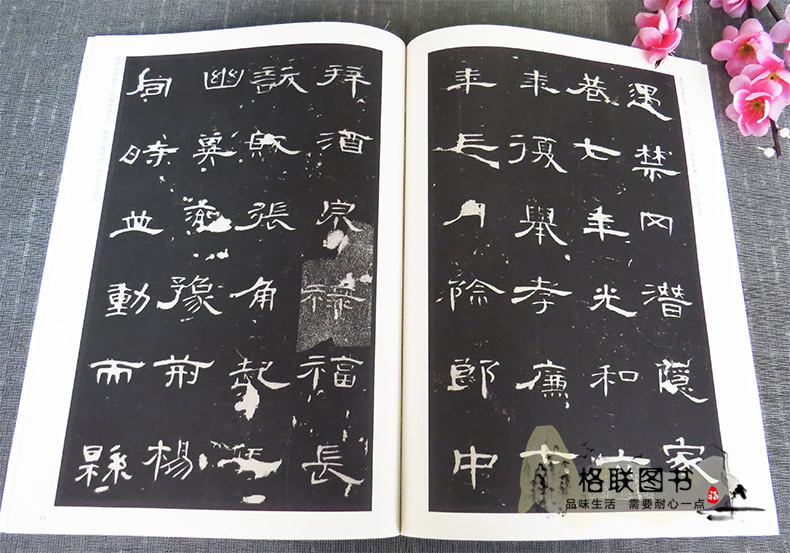 遇禁网潛隱家
巷七年光和六
年復舉孝廉七
年三月除郎中
拜酒泉祿福長
訞賊張角起兵
幽冀兗豫荊楊
同時並動而縣
格联图书
品味生活 需要耐心一点